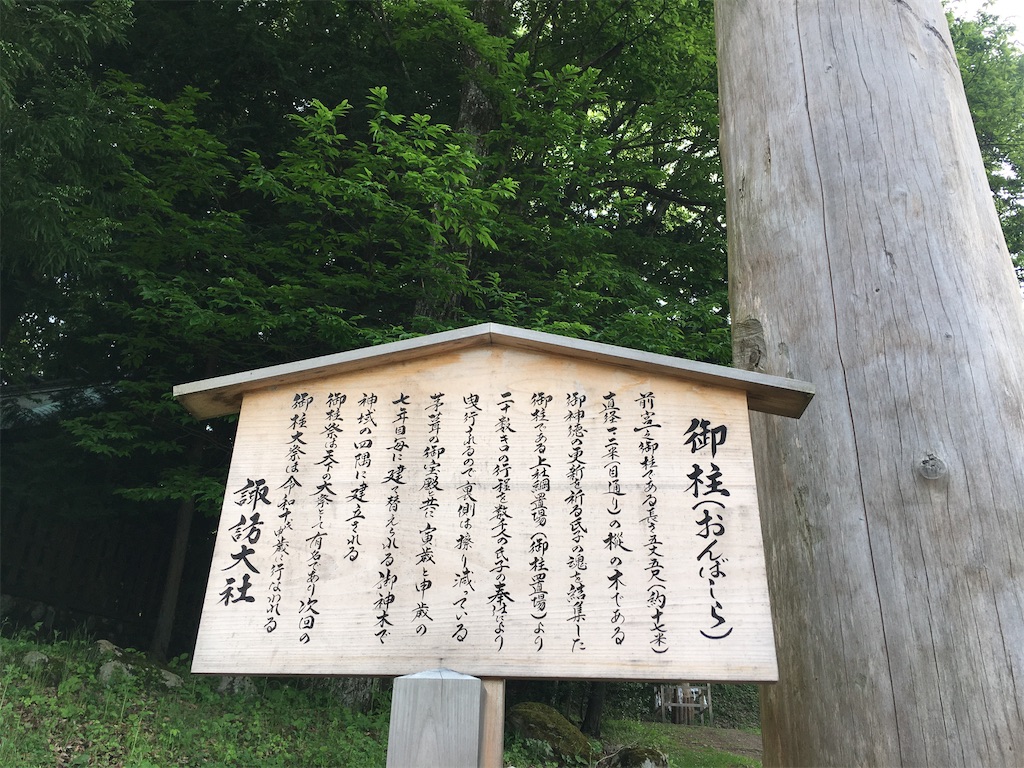 御柱(おんばしら)
前宮之御柱である長さ五丈五尺(約十七米)
直径一二米(目通り)の樅の木である
御神徳の更新を祈る氏子の魂を結集した
御柱である上社綱置場(御柱置場)より
二十数キロの行程を数千人の氏子の奉仕により
曳行されるので裏側は擦り減っている
茅葺の御宝殿と共に寅歳と申歳の
七年目毎に建て替えられる御神木で
神域の四隅に建立される
御柱祭は天下の大祭として有名であり次回の
御柱大祭は令和十戊申歳に行なわれる
諏訪大社